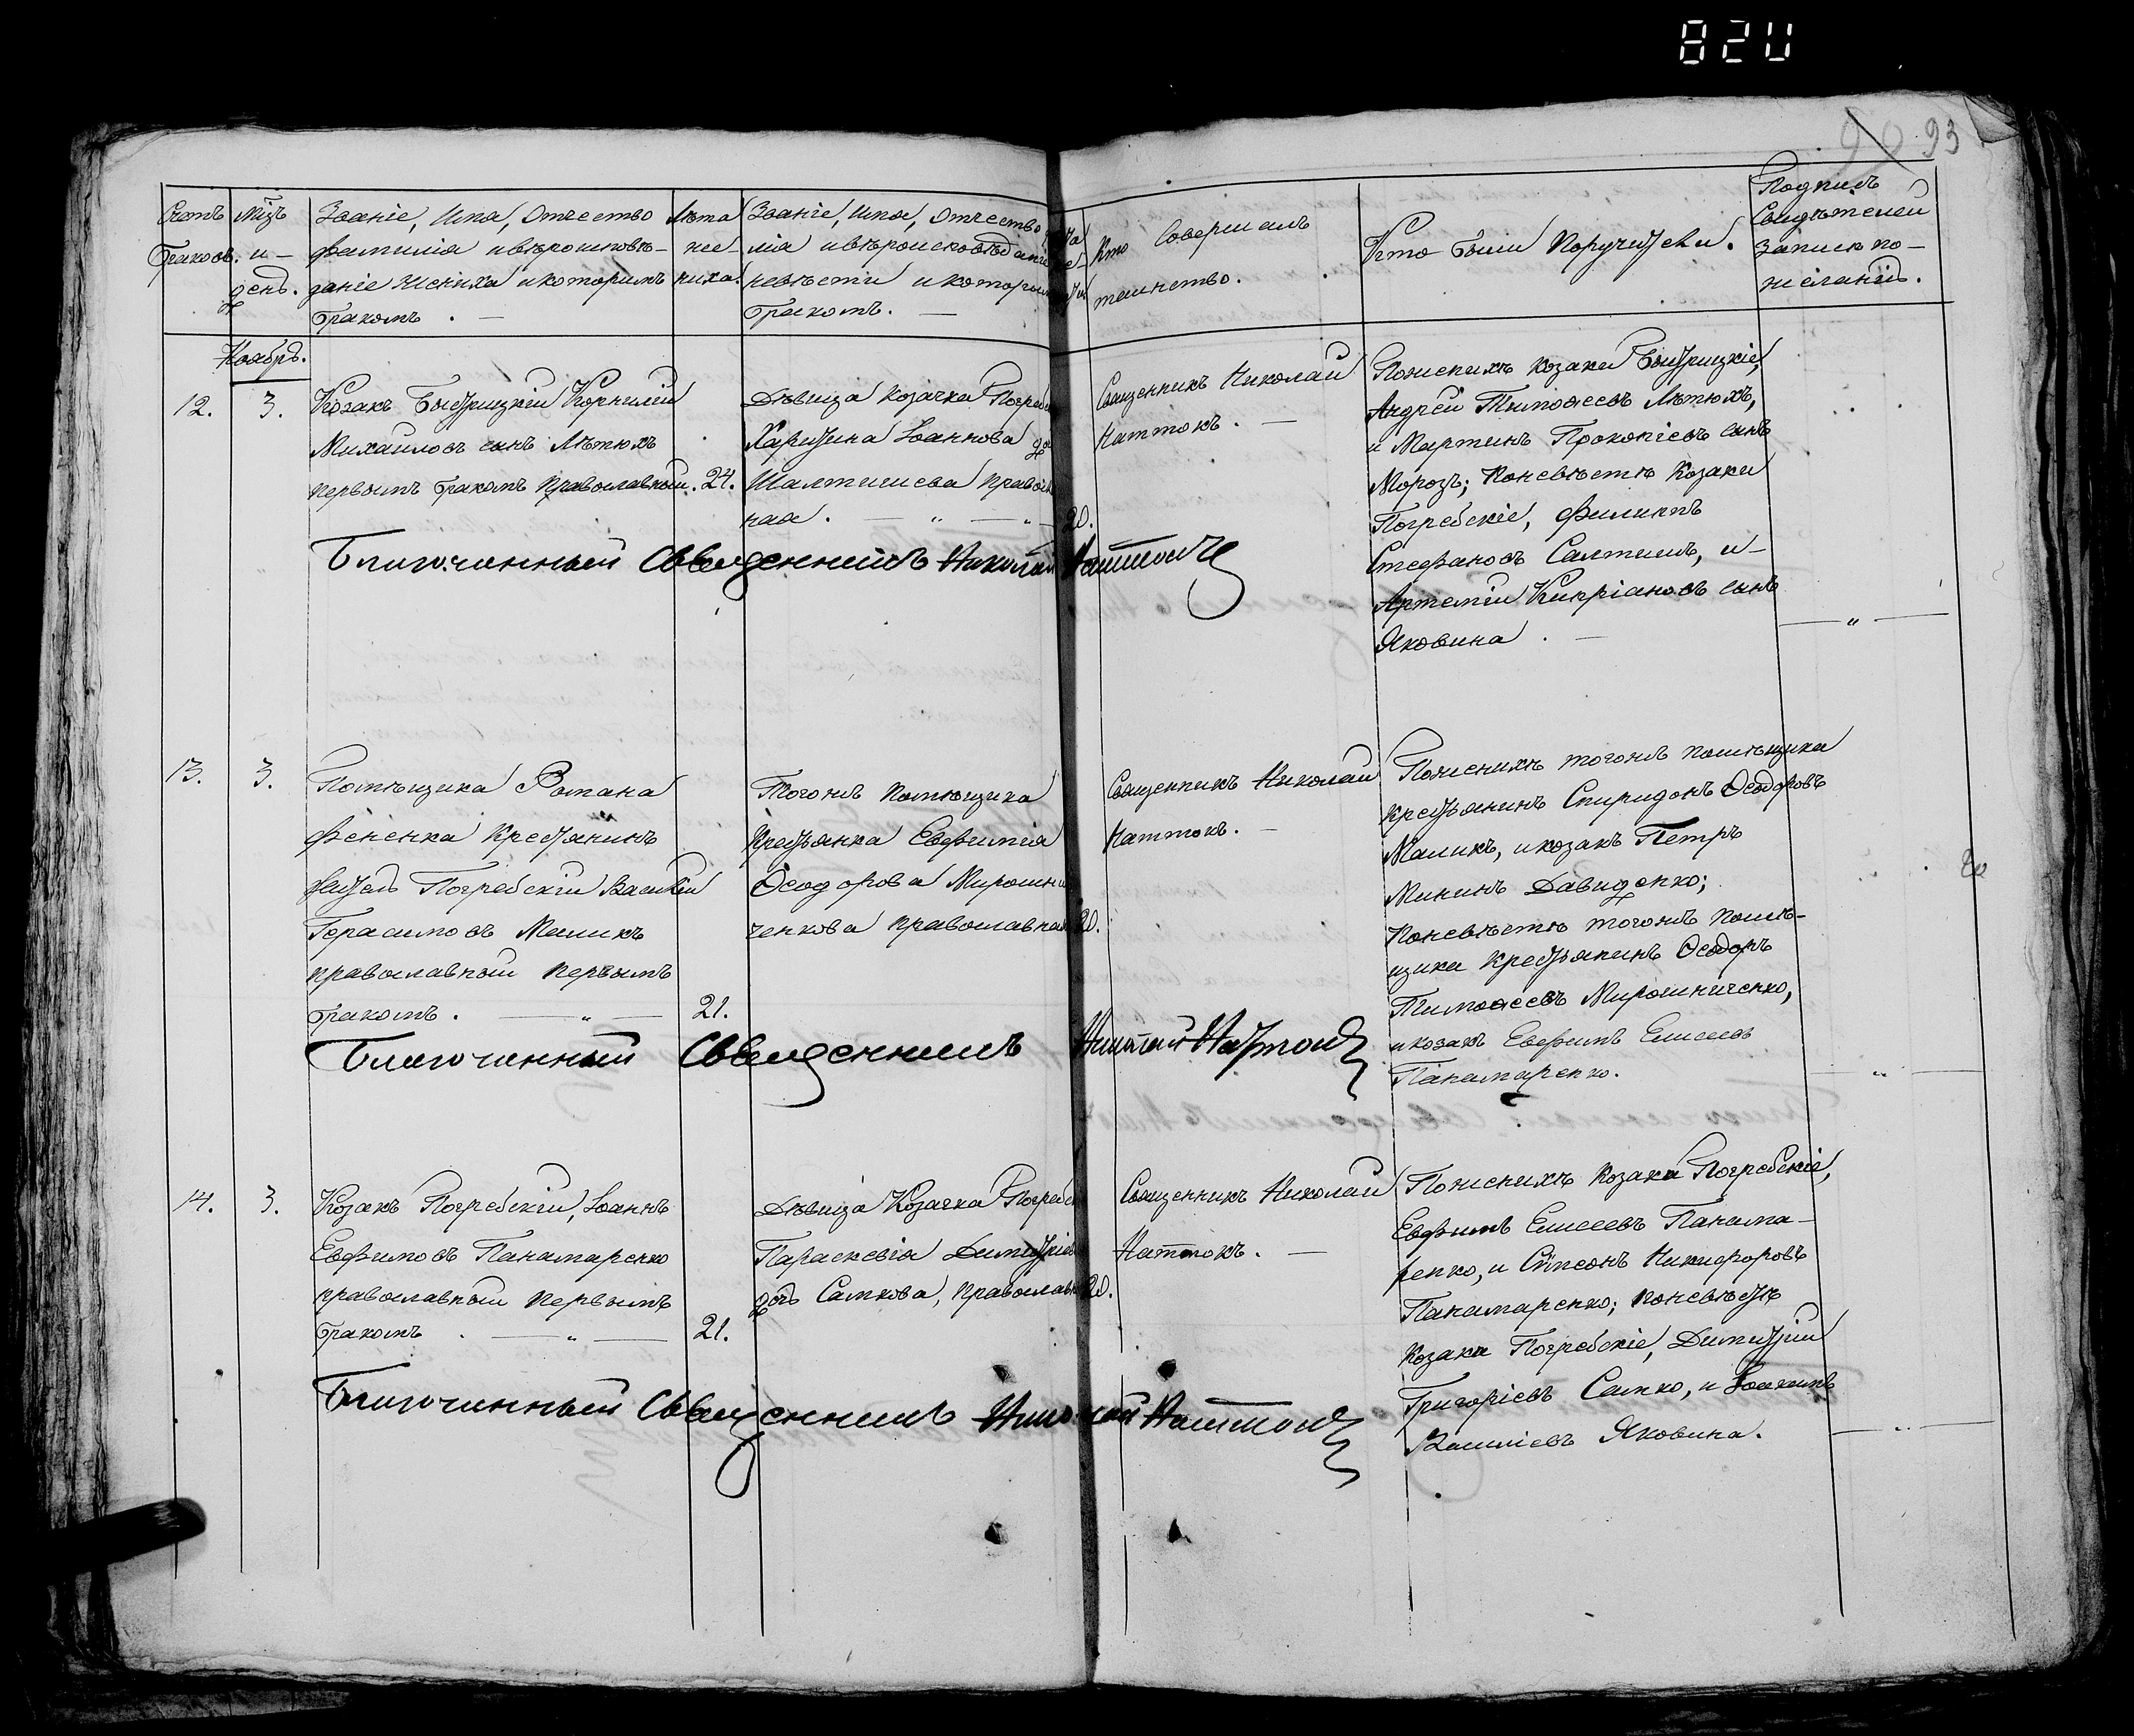 820
90 93
Счетъ
браковъ.
Мѣць
и
день.
Званіе, Имя, Отчество
фамилія и вѣроисповѣ-
даніе жениха и которимъ
бракомъ.
Лѣта
же
ниха.
Званіе, Имя, Отчество
лія и вѣроисповѣданіе
невѣсти и которимъ
бракомъ.
Кто Совершалъ
таинство.
Кто были Поручители.
Подписъ
Свидѣтелей
записи по-
желанію.
Ноябрь.
12. 3.
Козакъ Быстрицкій Корнилій
Михайловъ сынъ Лѣтюхъ
первымъ бракомъ православный. 24.
Дѣвица козачка Погреб
Харитина Іоаннова до
Шалтишева правосл
ная. 20.
Священникъ Николай
Наттокъ.
Поженихѣ козаки Быстрицкіе,
Андрей Тимоѳеевъ Лѣтюхъ,
и Мартинъ Прокопіевъ сынъ
Морозъ; Поневѣстѣ Козаки
Погребскіе, Филиппъ
Стефановъ Салтишъ, и-
Артемій Кипріановъ сынъ
Яковина.
Благочинный Священникъ Николай Наттокъ
13. 3.
Помѣщика Романа
Фененка Крестянинъ
житель Погребскій Василій
Герасимовъ Маликъ
православный первымъ
бракомъ. 21.
Тогожъ помѣщика
Крестьянка Евфимія
Ѳеодорова Мирошни
ченкова православная 20.
Священникъ Николай
Наттокъ.
Поженихѣ тогожъ помѣщика
крестьянинъ Спиридонъ Ѳеодоровъ
Маликъ, и козакъ Петръ
Мининъ Давиденко;
Поневѣстѣ тогожъ помѣ-
щика крестьянинъ Ѳеодоръ
Тимоѳеевъ Мирошниченко,
и козакъ Евфимъ Елисеевъ
Панамаренко.
Благочинный Священникъ Николай Наттокъ
14. 3.
Козакъ Погребскій, Іоаннъ
Евфимовъ Панамаренко
православный первымъ
бракомъ. 21.
Дѣвица Козачка Погребс
Параскевія Димитріев
дочь Самкова, православн 20.
Священникъ Николай
Наттокъ.
Поженихѣ Козаки Погребскіе,
Евфимъ Елисеевъ Панама-
ренко, и Симеонъ Никифоровъ
Панамаренко; поневѣстѣ
козаки Погребскіе, Димитрій
Григоріевъ Самко, и Іоаннъ
Василіевъ Яковина.
Благочинный Священникъ Николай Наттокъ